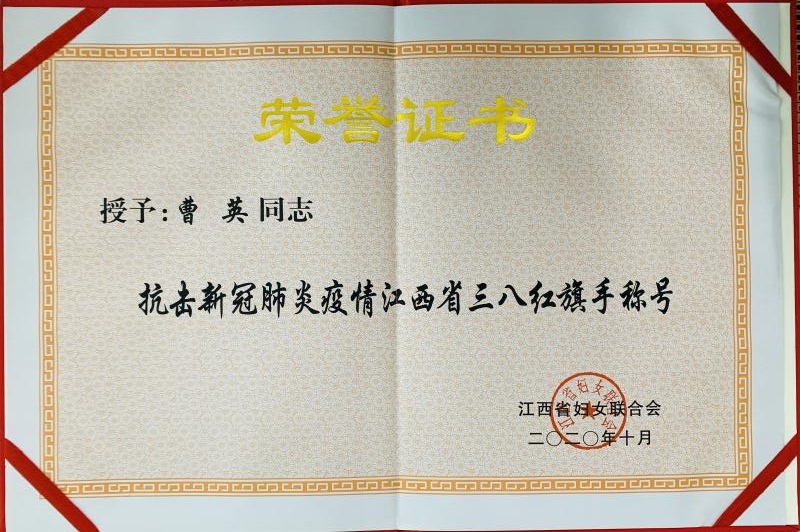 荣誉证书
授予:曹 英同志
抗击新冠肺炎疫情江西省三八红旗手称号
江西省妇女联合会
江西省妇女联合会
二〇二〇年十月